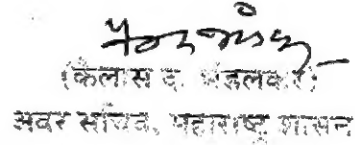 (कैलास द. मंडलकर)
अवर सचिव, महाराष्ट्र शासन